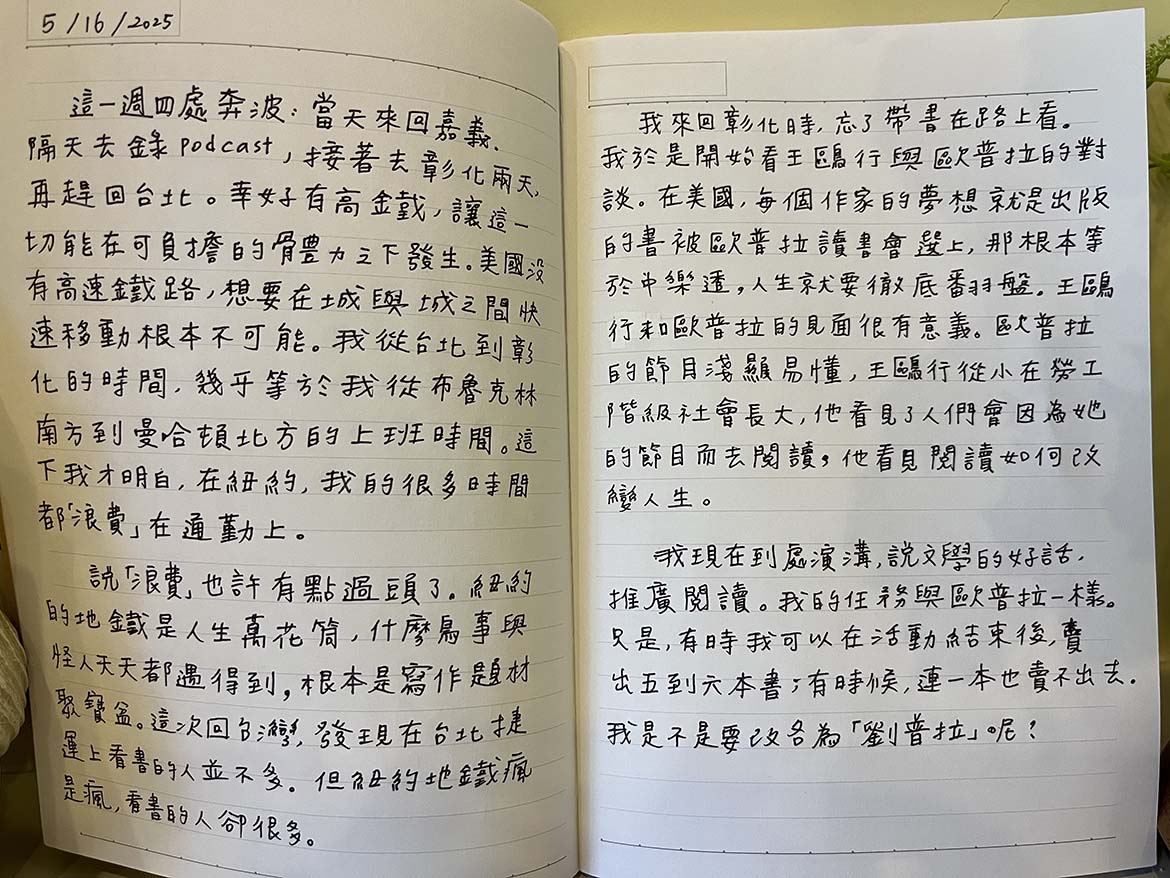 5/16/2025
這一週四處奔波：當天來回嘉義、
隔天去錄podcast，接著去彰化兩天，
再趕回台北。幸好有高金鐵，讓這一
切能在可負擔的體力之下發生。美國沒
有高速鐵路，想要在城與城之間快
速移動根本不可能。我從台北到彰
化的時間，幾乎等於我從布魯克林
南方到曼哈頓北方的上班時間。這
下我才明白，在紐約，我的很多時間
都「浪費」在通勤上。
說「浪費」也許有點過頭了。紐約
的地鐵是人生萬花筒，什麼鳥事與
怪人天天都遇得到，根本是寫作題材
聚寶盆。這次回台灣，發現在台北捷
運上看書的人並不多。但紐約地鐵瘋
是瘋，看書的人卻很多。
我來回彰化時，忘了帶書在路上看。
我於是開始看王鷗行與歐普拉的對
談。在美國，每個作家的夢想就是出版
的書被歐普拉讀書會選上，那根本等
於中樂透，人生就要徹底翻盤。王鷗
行和歐普拉的見面很有意義。歐普拉
的節目淺顯易懂，王鷗行從小在勞工
階級社會長大，他看見了人們會因為她
的節目而去閱讀，他看見閱讀如何改
變人生。
我現在到處演溝，說文學的好話，
推廣閱讀。我的任務與歐普拉一樣。
只是，有時我可以在活動結束後，賣
出五到六本書；有時候，連一本也賣不出去。
我是不是要改名為「劉普拉」呢？